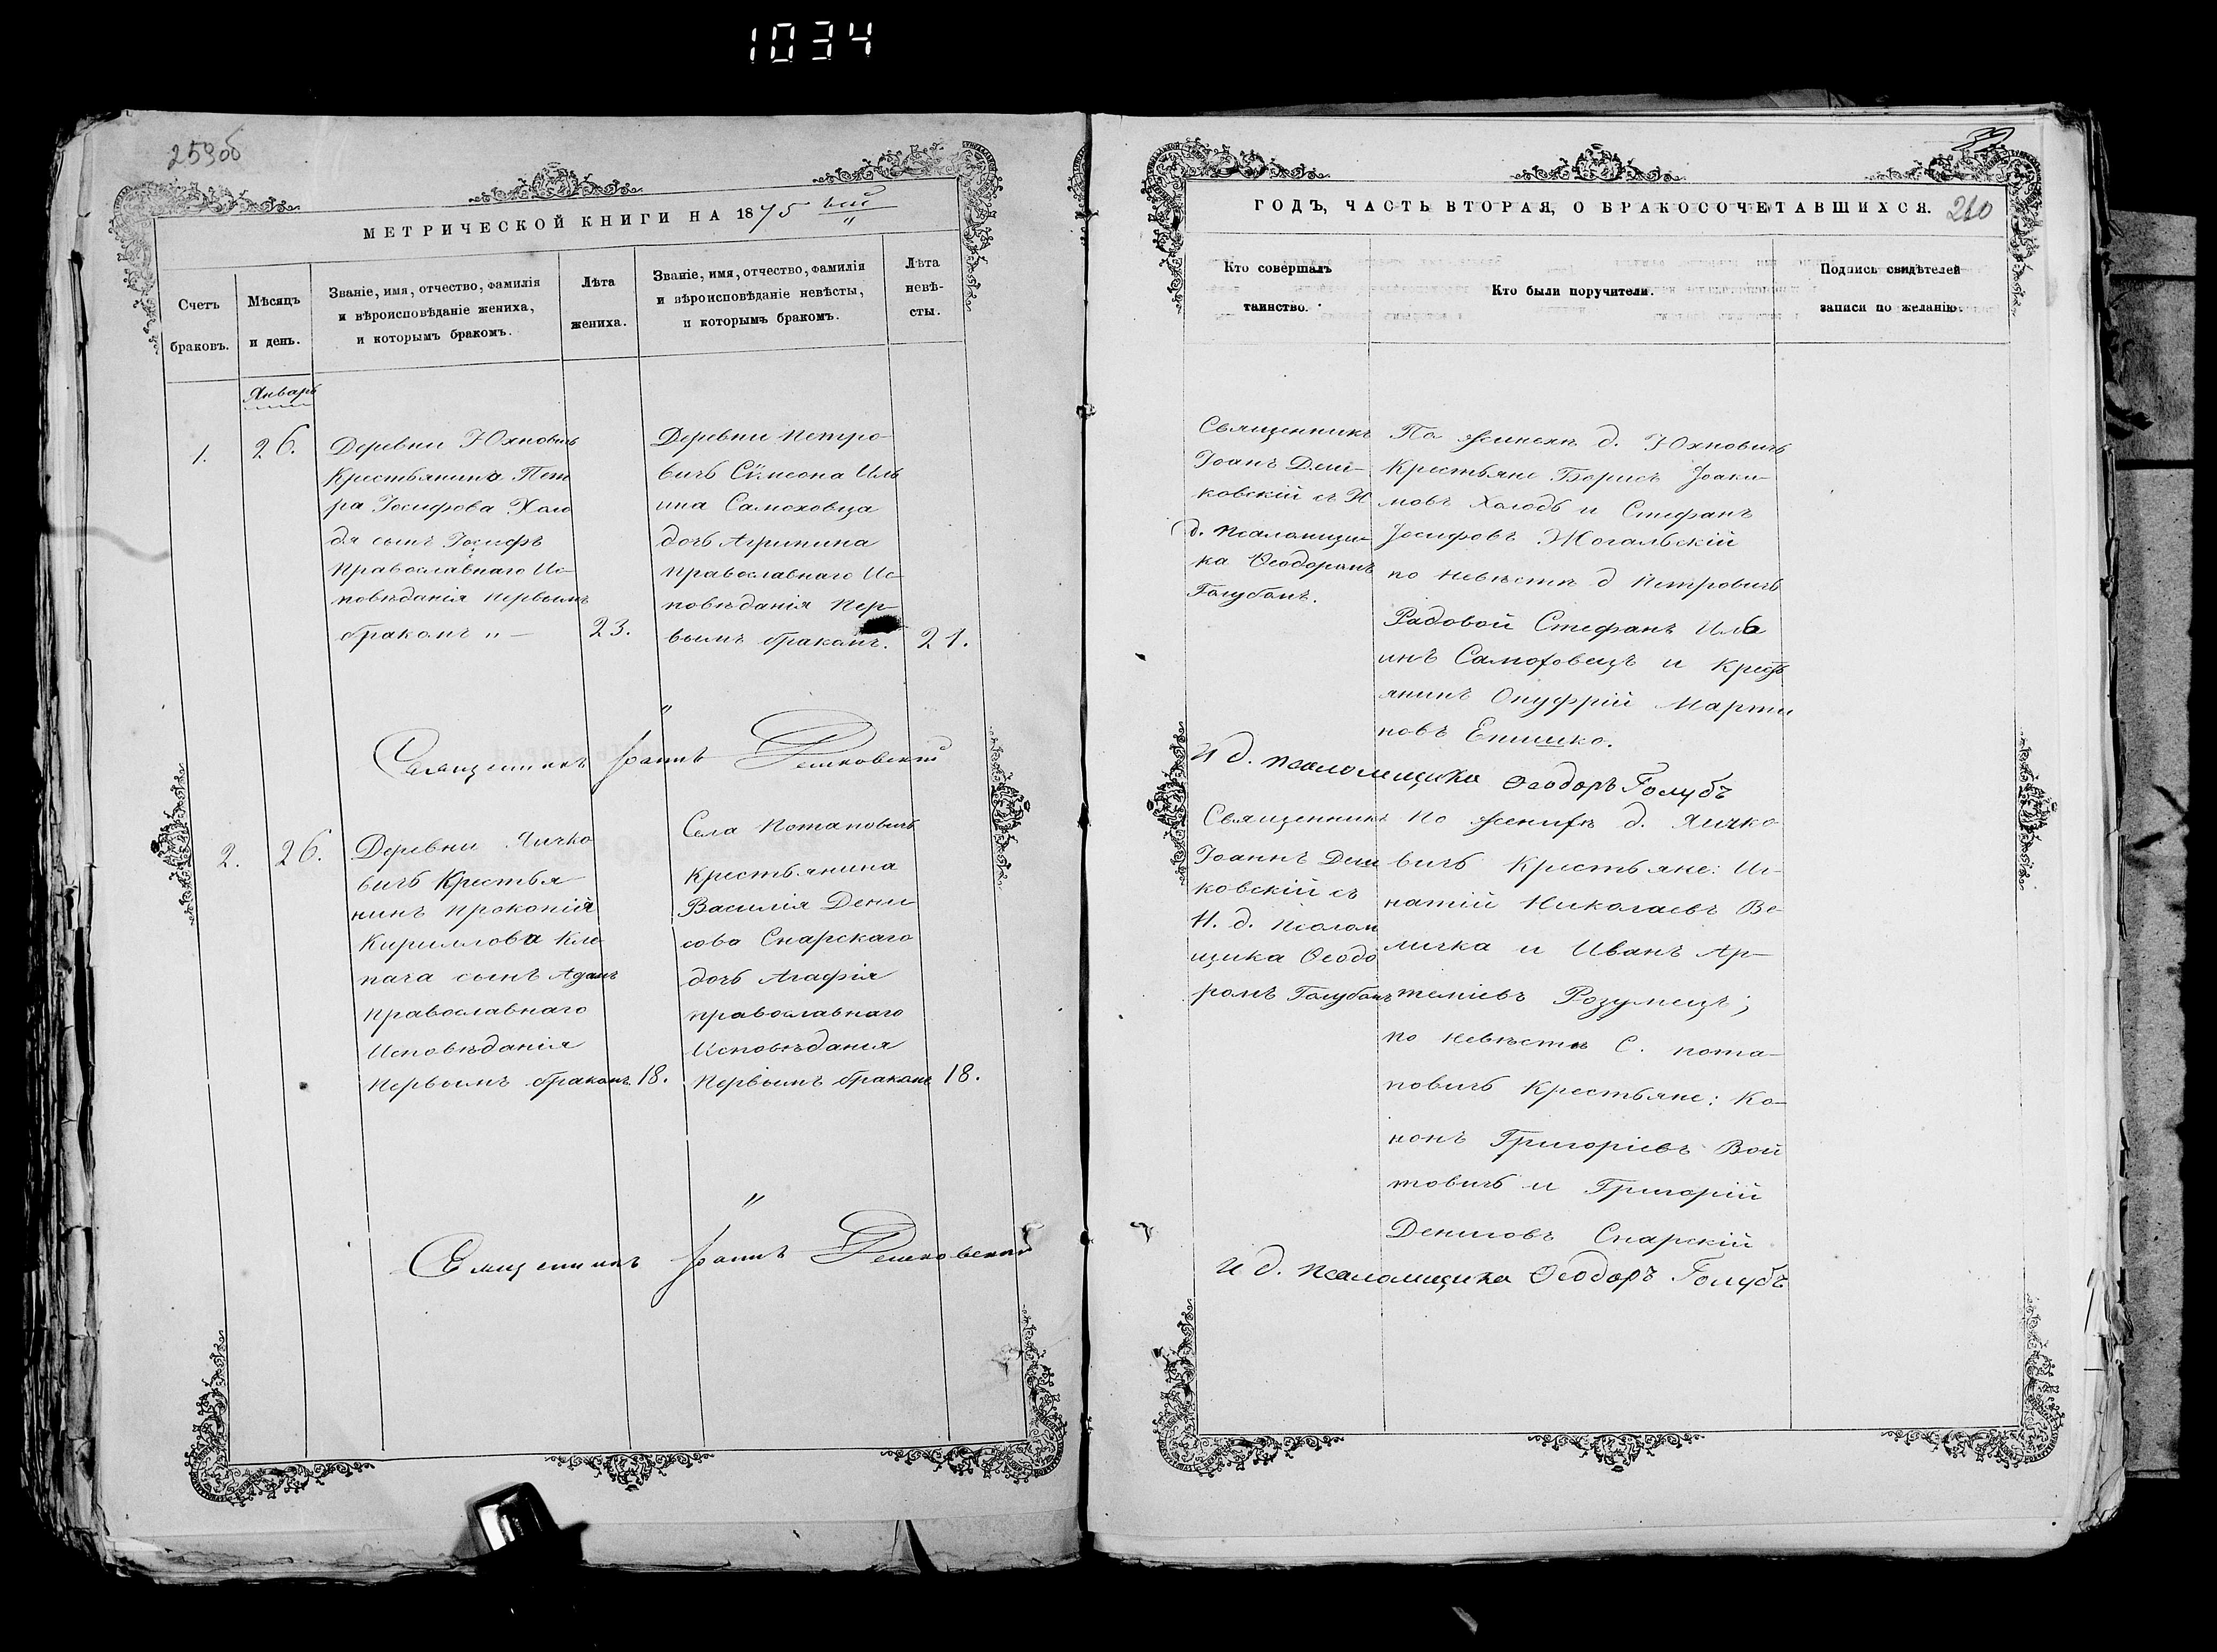 1034
259об
МЕТРИЧЕСКОЙ КНИГИ НА 1875 ый
Счетъ браковъ.
Мѣсяцъ и день.
Званіе, имя, отчество, фамилія
и вѣроисповѣданіе жениха,
и которымъ бракомъ.
Лѣта жениха.
Званіе, имя, отчество, фамилія
и вѣроисповѣданіе невѣсты,
и которымъ бракомъ.
Лѣта невѣ-
сты.
Январь
1.
26.
Деревни Юхновичъ
Крестьянина Пет
ра Іосифова Холо
дя сынъ Іосифъ
Православнаго Ис-
повѣданія первымъ
бракомъ „ —
23.
Деревни Петро-
вичъ Сѵмеона Иль
ина Самоховца
дочь Агрипина
Православнаго Ис-
повѣданія пер-
вымъ бракомъ.
21.
Священникъ Іоаннъ
2.
26.
Деревни Яичко
вичъ Крестья
нинъ Прокопія
Кириллова Кле
пача сынъ Адамъ
православнаго
Исповѣданія
первымъ бракомъ
18.
Села Потаповичъ
Крестьянина
Василія Дени
сова Снарскаго
дочь Агафія
православнаго
Исповѣданія
первымъ бракомъ
18.
Священникъ Іоаннъ
32
210
ГОДЪ, ЧАСТЬ ВТОРАЯ, О БРАКОСОЧЕТАВШИХСЯ.
Кто совершалъ
таинство.
Кто были поручители.
Подпись свидѣтелей
записи по желанію.
Священникъ
Іоанъ
ковскій съ И
д. псаломщи-
ка Ѳеодоромъ
Голубомъ.
По женихѣ д. Юхновичъ
Крестьяне Борисъ Іоаки-
мовъ Холодъ и Стефанъ
Іосифовъ Жогальскій
по невѣстѣ д Петровичъ
Радовой Стефанъ Иль
инъ Самоховецъ и Крест
янинъ Онуфрій Марти
новъ
И д. псаломщика Ѳеодоръ Голубъ
Священникъ
Іоаннъ
ковскій съ
И. д. псалом
щика Ѳеодо
ромъ Голубомъ
по женихѣ д. Яичко
вичъ Крестьяне: Иг-
натій Николаевъ Ве-
личка и Иванъ Ар-
теміевъ Розумецъ;
по невѣстѣ С. пота-
повичъ Крестьяне: Ко-
нонъ Григоріевъ Вой
товичъ и Григорій
Денисовъ Снарскій
И д. псаломщика Ѳеодоръ Голубъ